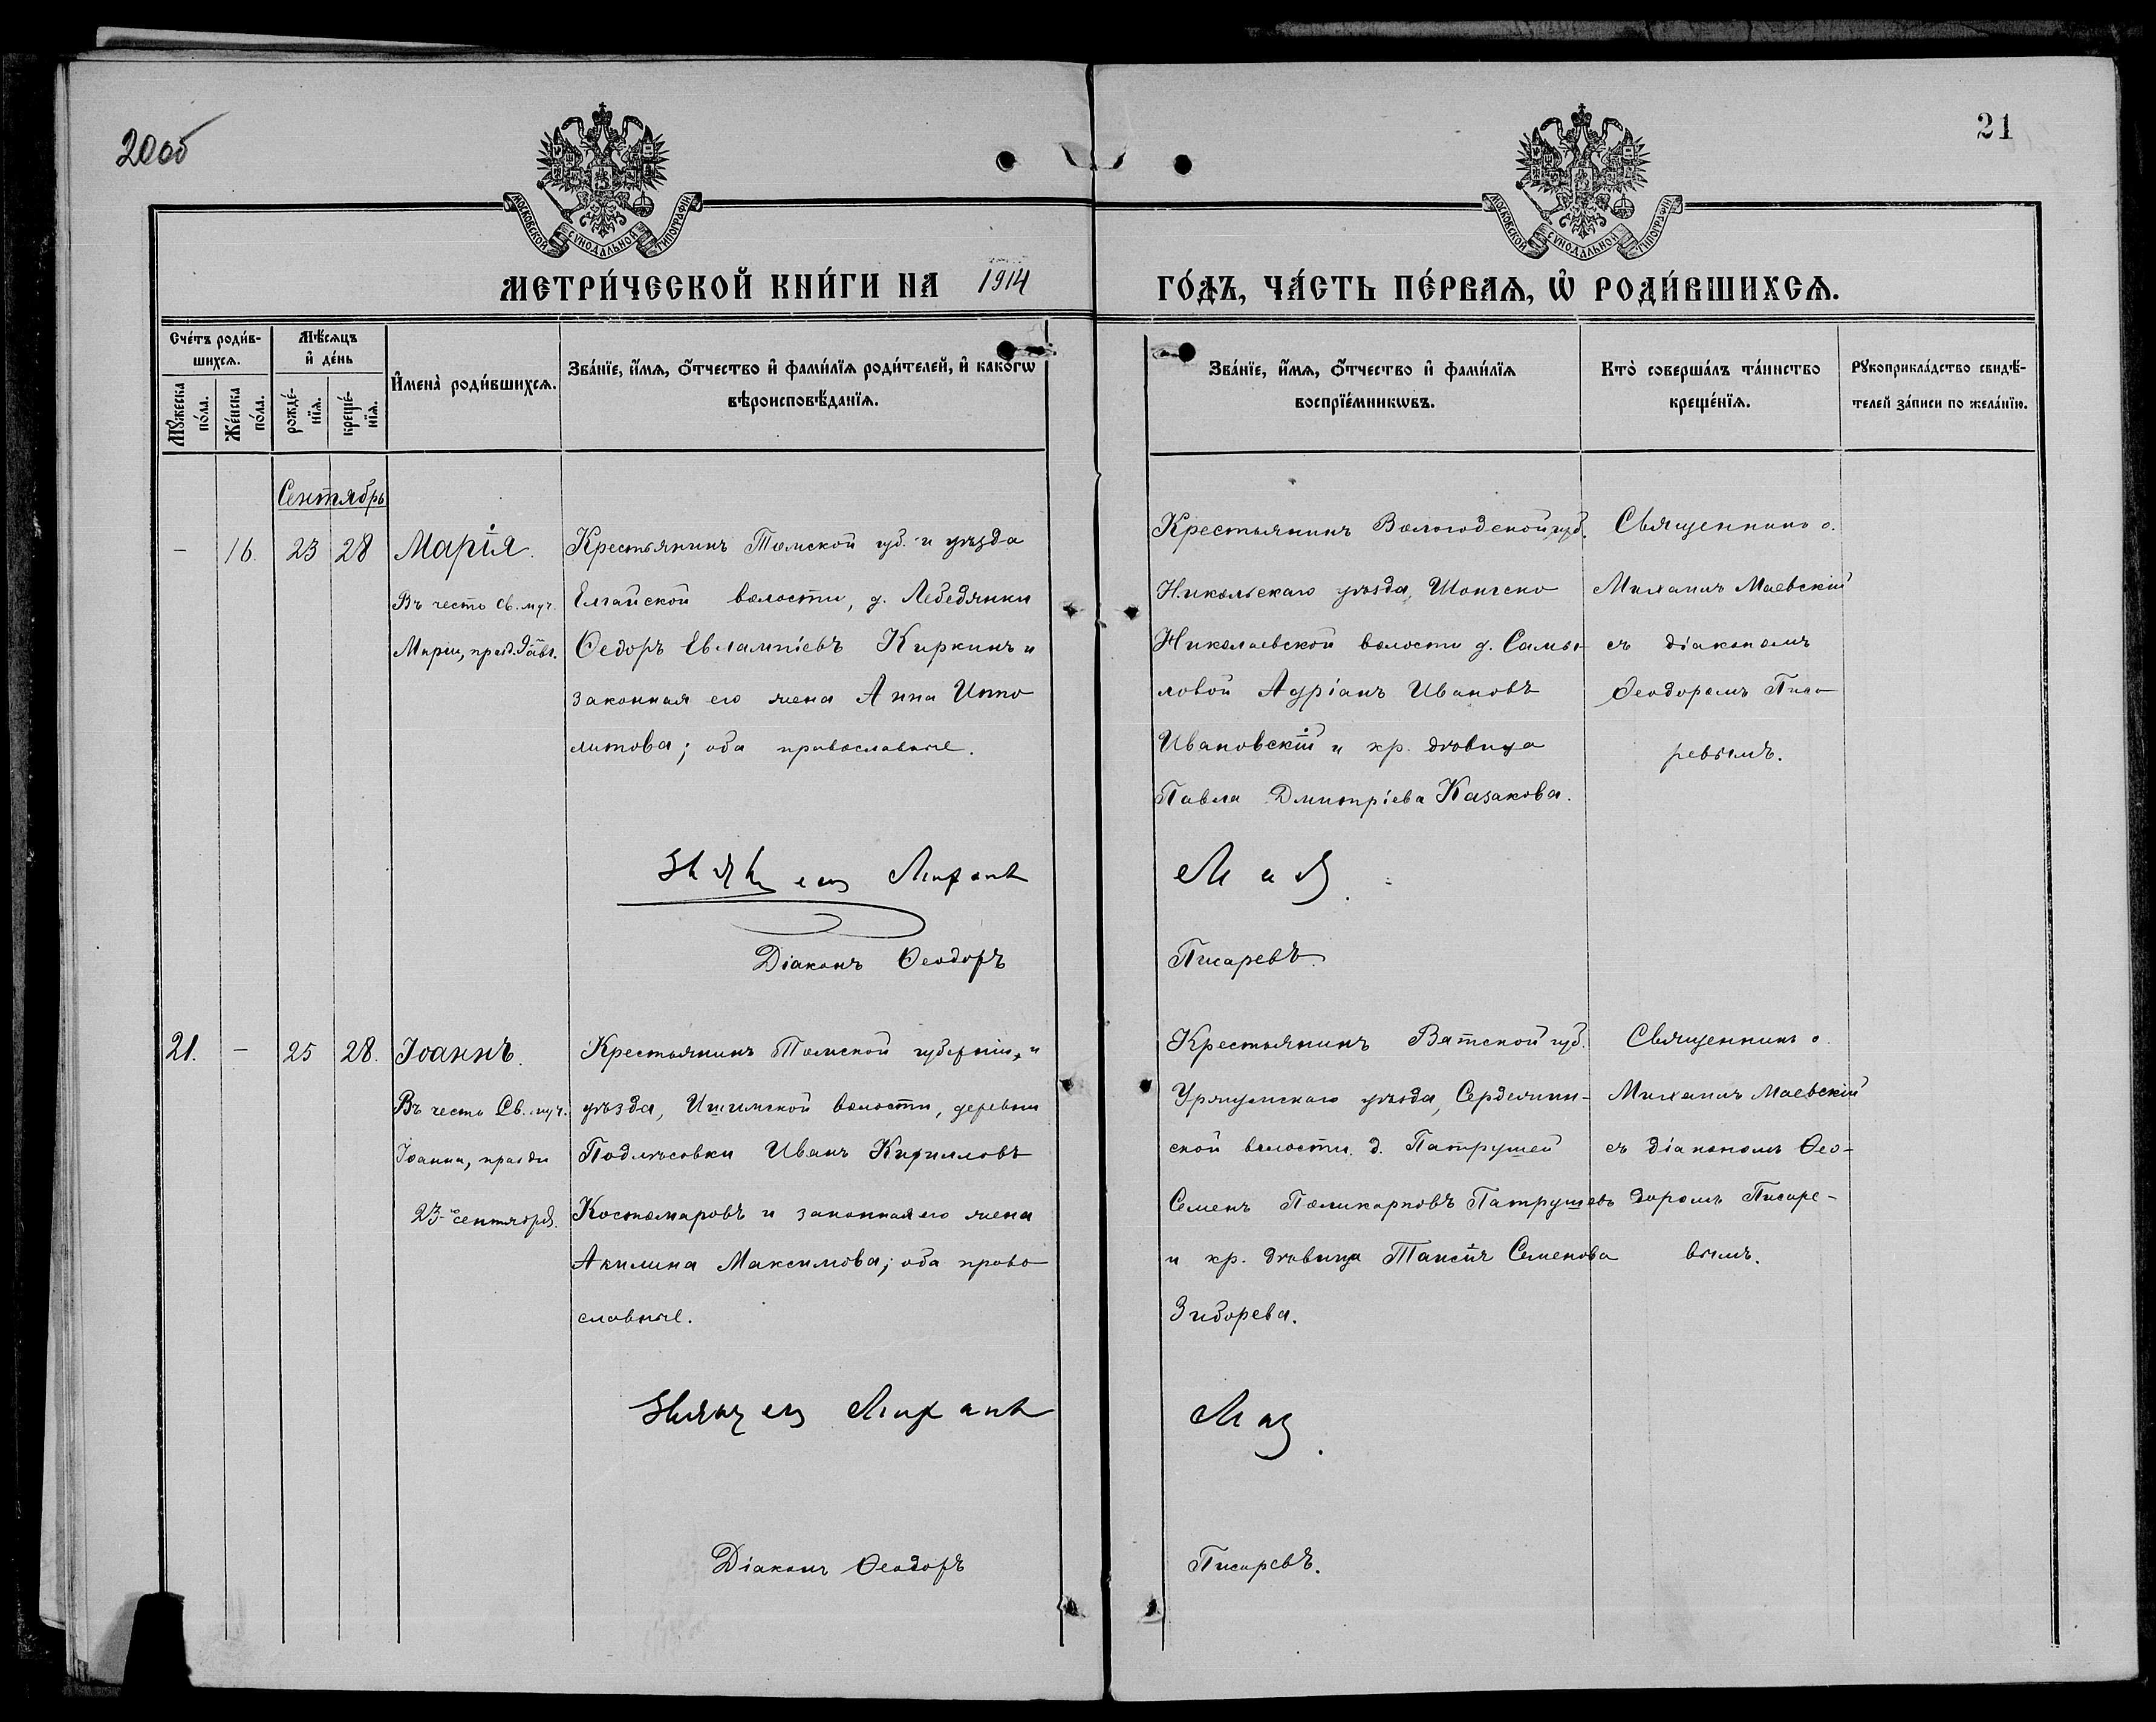 20об
21
МОСКОВСКОЙ СѴНОДАЛЬНОЙ ТИПОГРАФІИ
МОСКОВСКОЙ СѴНОДАЛЬНОЙ ТИПОГРАФІИ
МЕТРИ́ЧЕСКОЙ КНИ́ГИ НА 1914 ГО́ДЪ, ЧА́СТЬ ПЕ́РВАѦ, Ѡ҆ РОДИ́ВШИХСѦ.
Сче́тъ роди́в-
шихсѧ.
Мꙋ́жеска
по́ла.
Же́нска
по́ла.
Мѣ́сѧцъ
и҆ де́нь
рожде́-
нїѧ.
креще́-
нїѧ.
И҆мена̀ роди́вшихсѧ.
Зва́нїе, и҆́мѧ, ѻ҆́тчество и҆ фами́лїѧ роди́телей, и҆ како́гѡ
вѣроисповѣ́данїѧ.
Зва́нїе, и҆́мѧ, ѻ҆́тчество и҆ фами́лїѧ
воспрїе́мникѡвъ.
Кто̀ соверша́лъ та́инство
креще́нїѧ.
Рꙋкоприкла́дство свидѣ́-
телей за́писи по жела́нїю.
Сентябрь
– 16. 23 28
Марія.
Въ честь св. муч.
Маріи, празд.
Крестьянинъ Томской губ. и уѣзда
Елгайской волости, д. Лебедянки
Ѳедоръ Евлампіевъ Киркинъ и
законная его жена Анна Иппо
литова; оба православные.
Крестьянинъ Вологодской губ.
Никольскаго уѣзда, Шонгско
Николаевской волости д. Самы-
ловой Адріанъ Ивановъ
Ивановскій и кр. дѣвица
Павла Дмитріева Казакова.
Священникъ о.
Михаилъ Маевскій
съ діакономъ
Ѳеодоромъ Писа-
ревымъ.
Михаилъ
Діаконъ Ѳеодоръ Писаревъ.
21. – 25 28.
Іоаннъ.
Въ честь Св. муч.
Іоанна, праздн
23-го сентября.
Крестьянинъ Томской губерніи и
уѣзда, Ишимской волости, деревни
Подлѣсовки Иванъ Кирилловъ
Костомаровъ и законная его жена
Акилина Максимова; оба право
славные.
Крестьянинъ Вятской губ.
Уржумскаго уѣзда, Сердежин-
ской волости д. Патрушей
Семенъ Поликарповъ Патрушевъ
и кр. дѣвица Таисія Семенова
Зиборева.
Священникъ о.
Михаилъ Маевскій
съ діакономъ Ѳео-
доромъ Писаре-
вымъ.
Михаилъ
Діаконъ Ѳеодоръ Писаревъ.